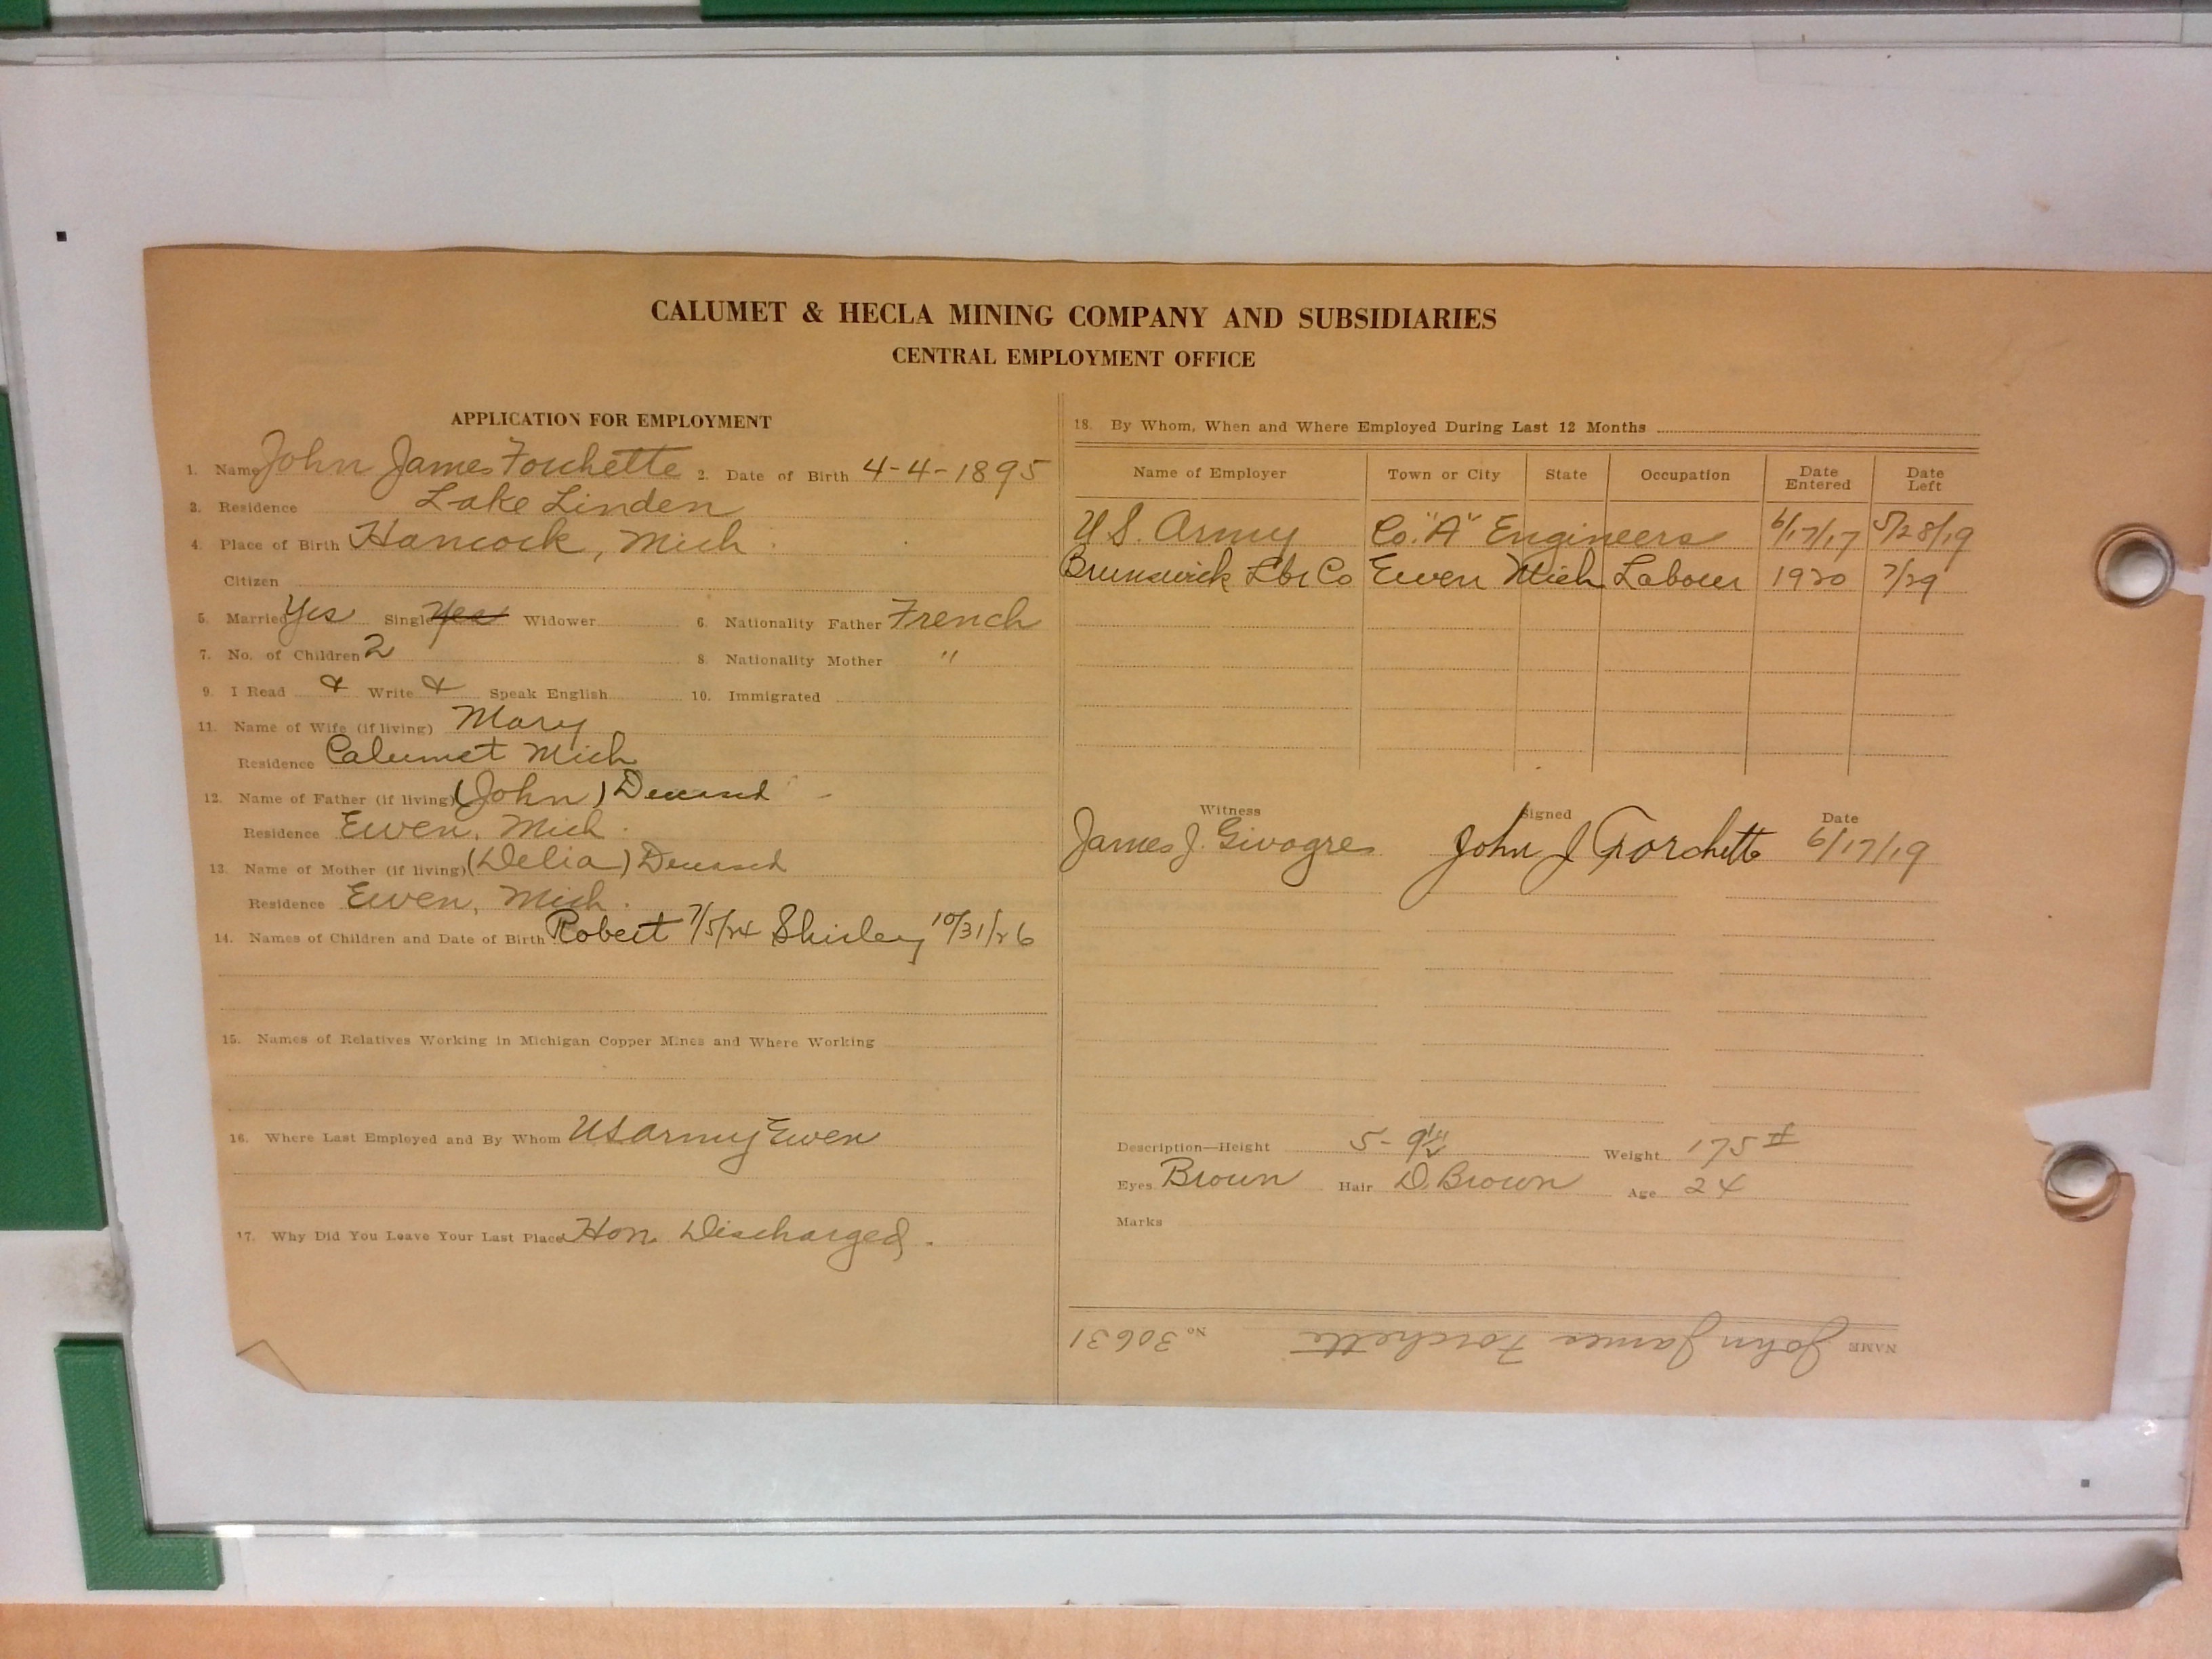 CALUMET & HECLA MINING COMPANY AND SUBSIDIARIES
CENTRAL EMPLOYMENT OFFICE
APPLICATION FOR EMPLOYMENT
1. Name John James Forchette 2. Date of Birth 4-4-1895
3. Residence Lake Linden
4. Place of Birth Hancock, Mich.
Citizen
5. Married Yes Single Yes Widower 6. Nationality Father French
7. No. of Children 2 8. Nationality Mother "
9. I Read & Write & Speak English 10. Immigrated
11. Name of Wife (if living) Mary
Residence Calumet Mich
12. Name of Father (if living) (John) Deceased
Residence Ewen, Mich.
13. Name of Mother (if living) (Delia) Deceased
Residence Ewen, Mich.
14. Names of Children and Date of Birth Robert 7/5/24 Shirley 10/31/26
15. Names of Relatives Working in Michigan Copper Mines and Where Working
16. Where Last Employed and By Whom US army Ewen
17. Why Did You Leave Your Last Place Hon. Discharged.
18. By Whom, When and Where Employed During Last 12 Months
Name of Employer Town or City State Occupation Date Entered Date Left
U.S. Army Co. "A" Engineers 6/17/17 5/28/19
Brunswick Lbr Co Ewen Mich Labour 1920 7/29
Witness Signed Date
James J. John J Forchette 6/17/19
Description—Height 5-9 1/2" Weight 175 #
Eyes Brown Hair D. Brown Age 24
Marks
NAME John James Forchette No. 30631